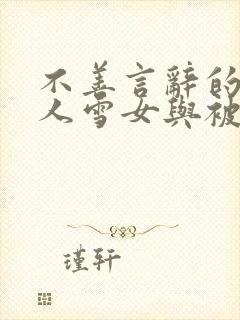 不善言辭的
人雪女與被
瑾轩